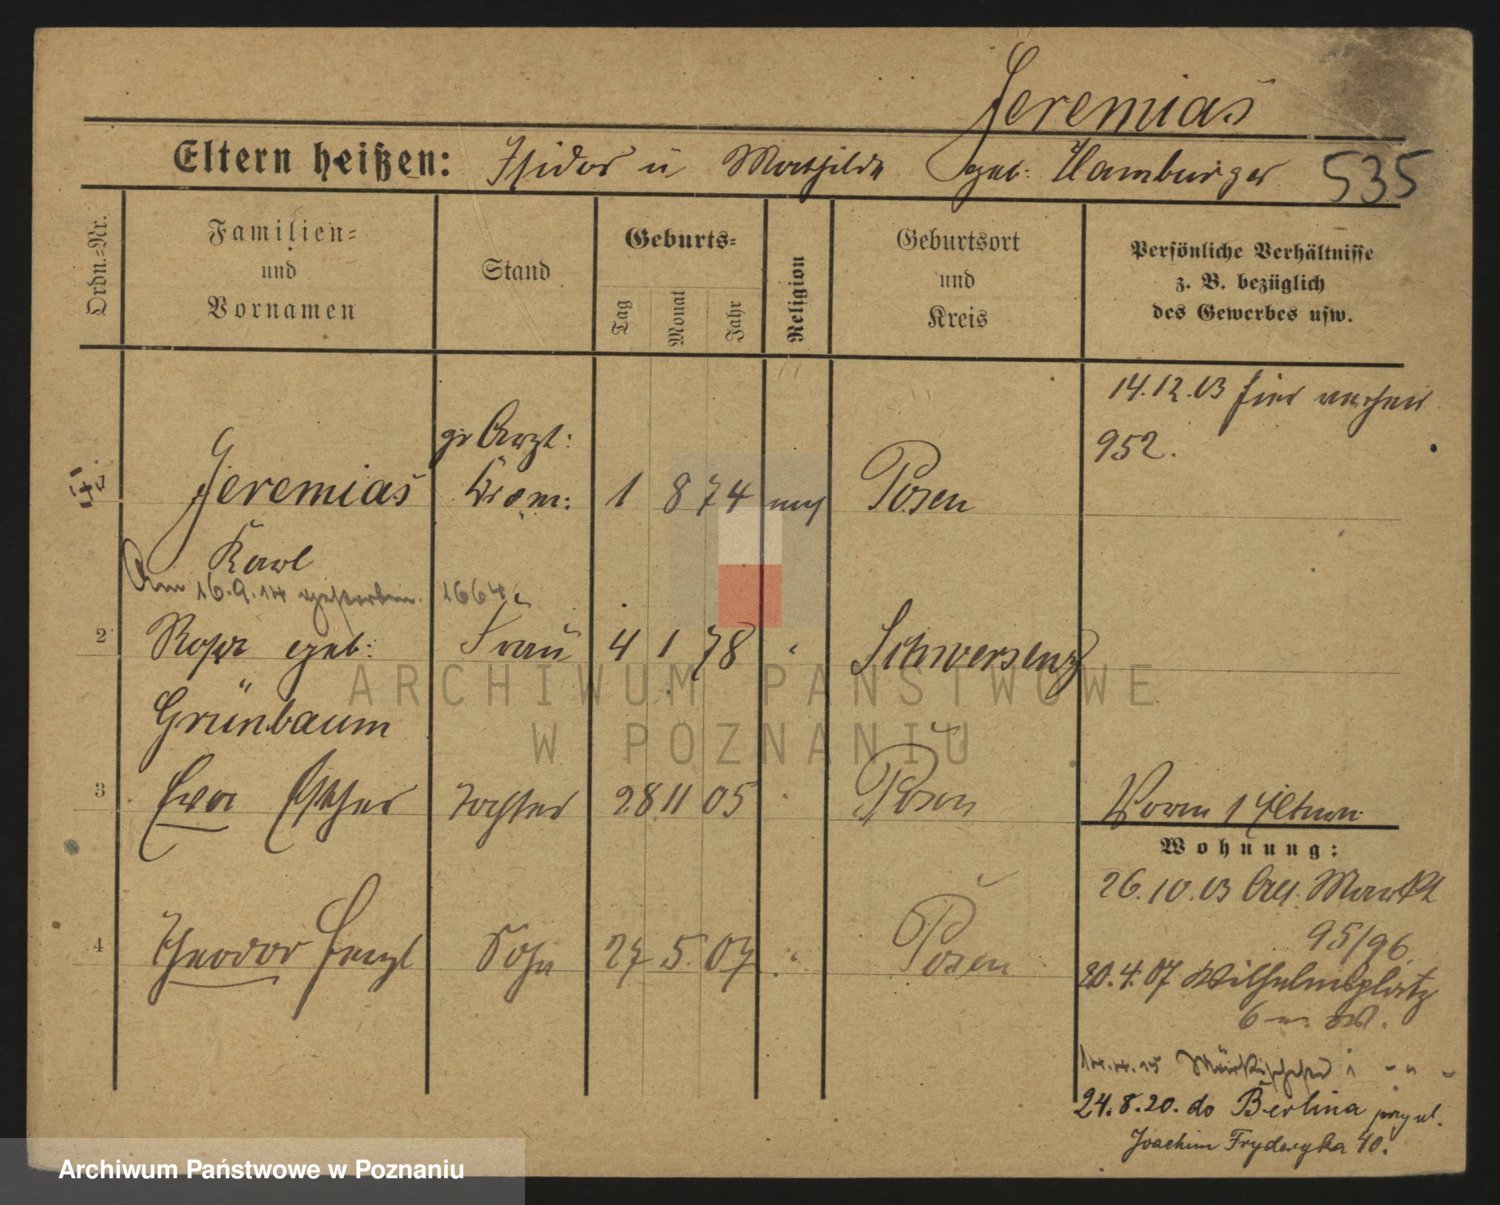 Jeremias
Eltern heißen: Isidor u Mathilde geb: Hamburger 535
Ordn.=Nr.
Familien=
und
Vornamen
Stand
Geburts=
Tag
Monat
Jahr
Religion
Geburtsort
und
Kreis
Persönliche Verhältnisse
z. B. bezüglich
des Gewerbes usw.
14.12.03 hier
952.
Arzt:
Jeremias 1 8 74 Posen
Karl
Am 16.9.14 gestorben. 1664
2 Rosa geb: Frau 4 1 78 Schwersenz
Grünbaum
3 Eva Esther Tochter 28 11 05 Posen
4 Theodor Sohn 27 5. 07 Posen
Wohnung:
26.10.03 Alt. Markt
95/96
20.4.07 Wilhelmsplatz
6
24.8.20. do Berlina
Joachim Fryderyka 40.
ARCHIWUM PAŃSTWOWE
W POZNANIU
Archiwum Państwowe w Poznaniu